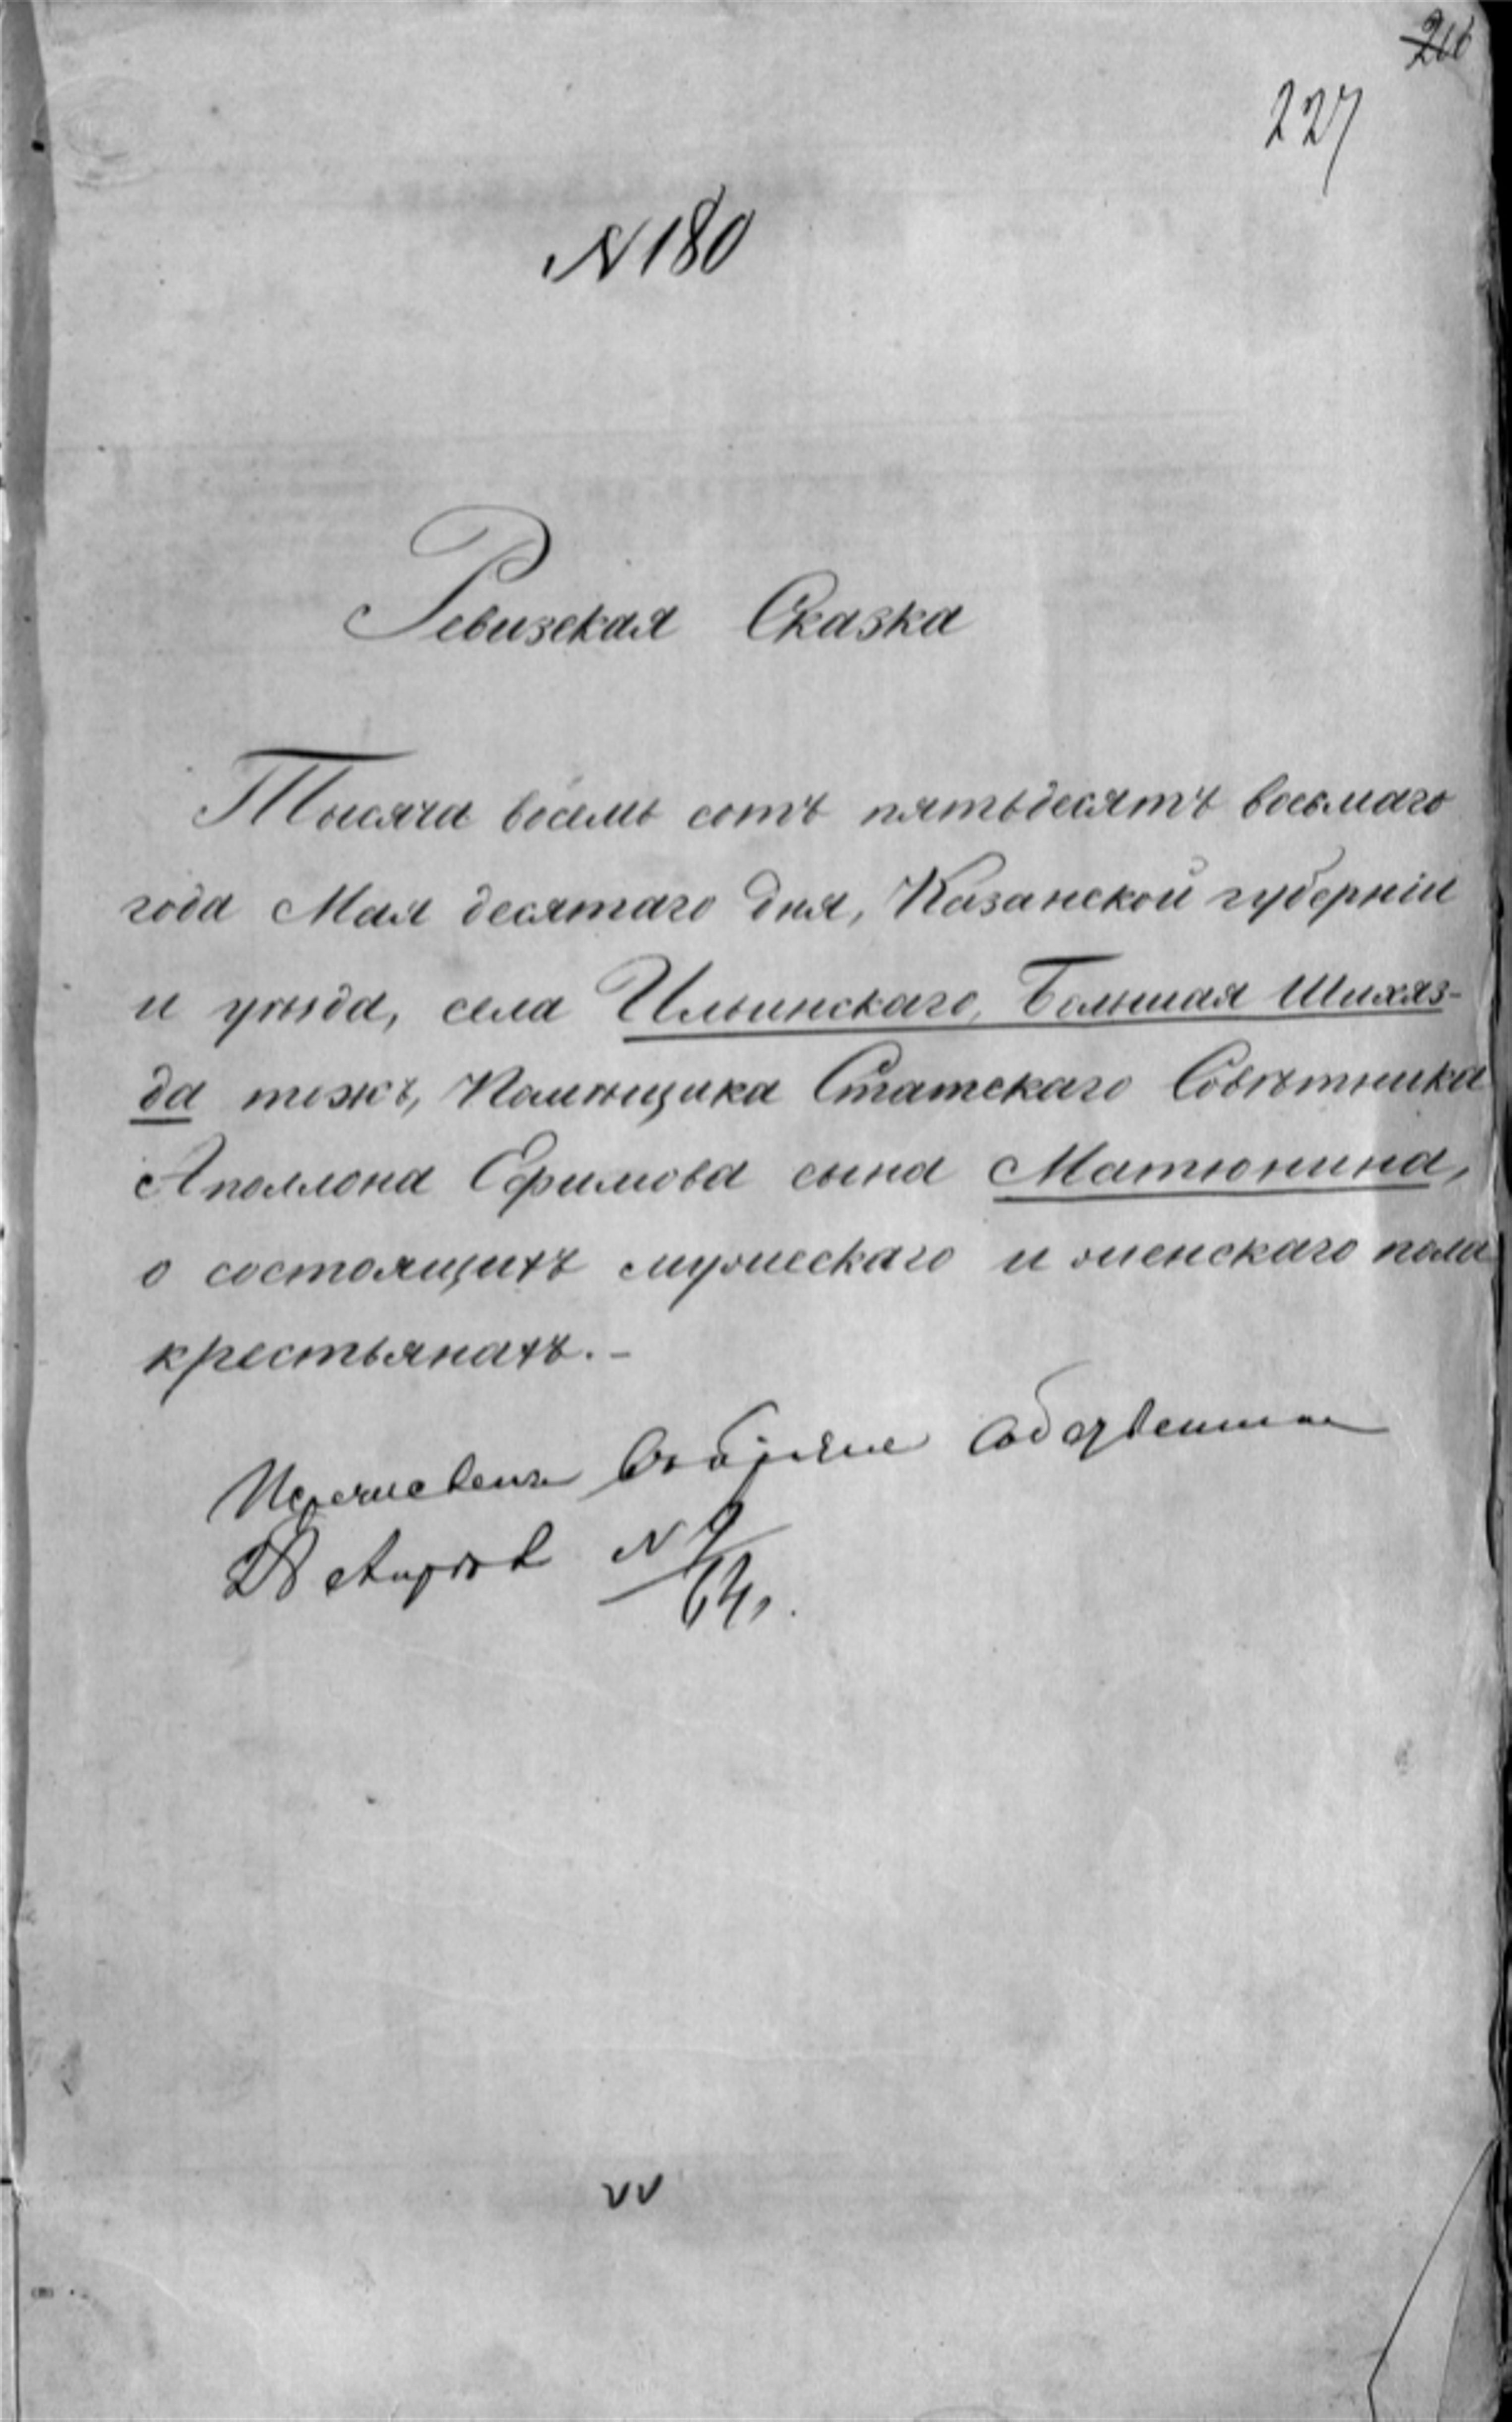 227
N 180
Ревизская Сказка
Тысяча восемь сотъ пятьдесятъ восьмаго
года Мая десятаго дня, Казанской губерніи
и уѣзда, села Ильинскаго, Большая Шихяз-
да тожъ, Помѣщика Статскаго Совѣтника
Аполлона Ефимова сына Матюнина,
о состоящихъ мужескаго и женскаго пола
крестьянахъ.-
N 9
64